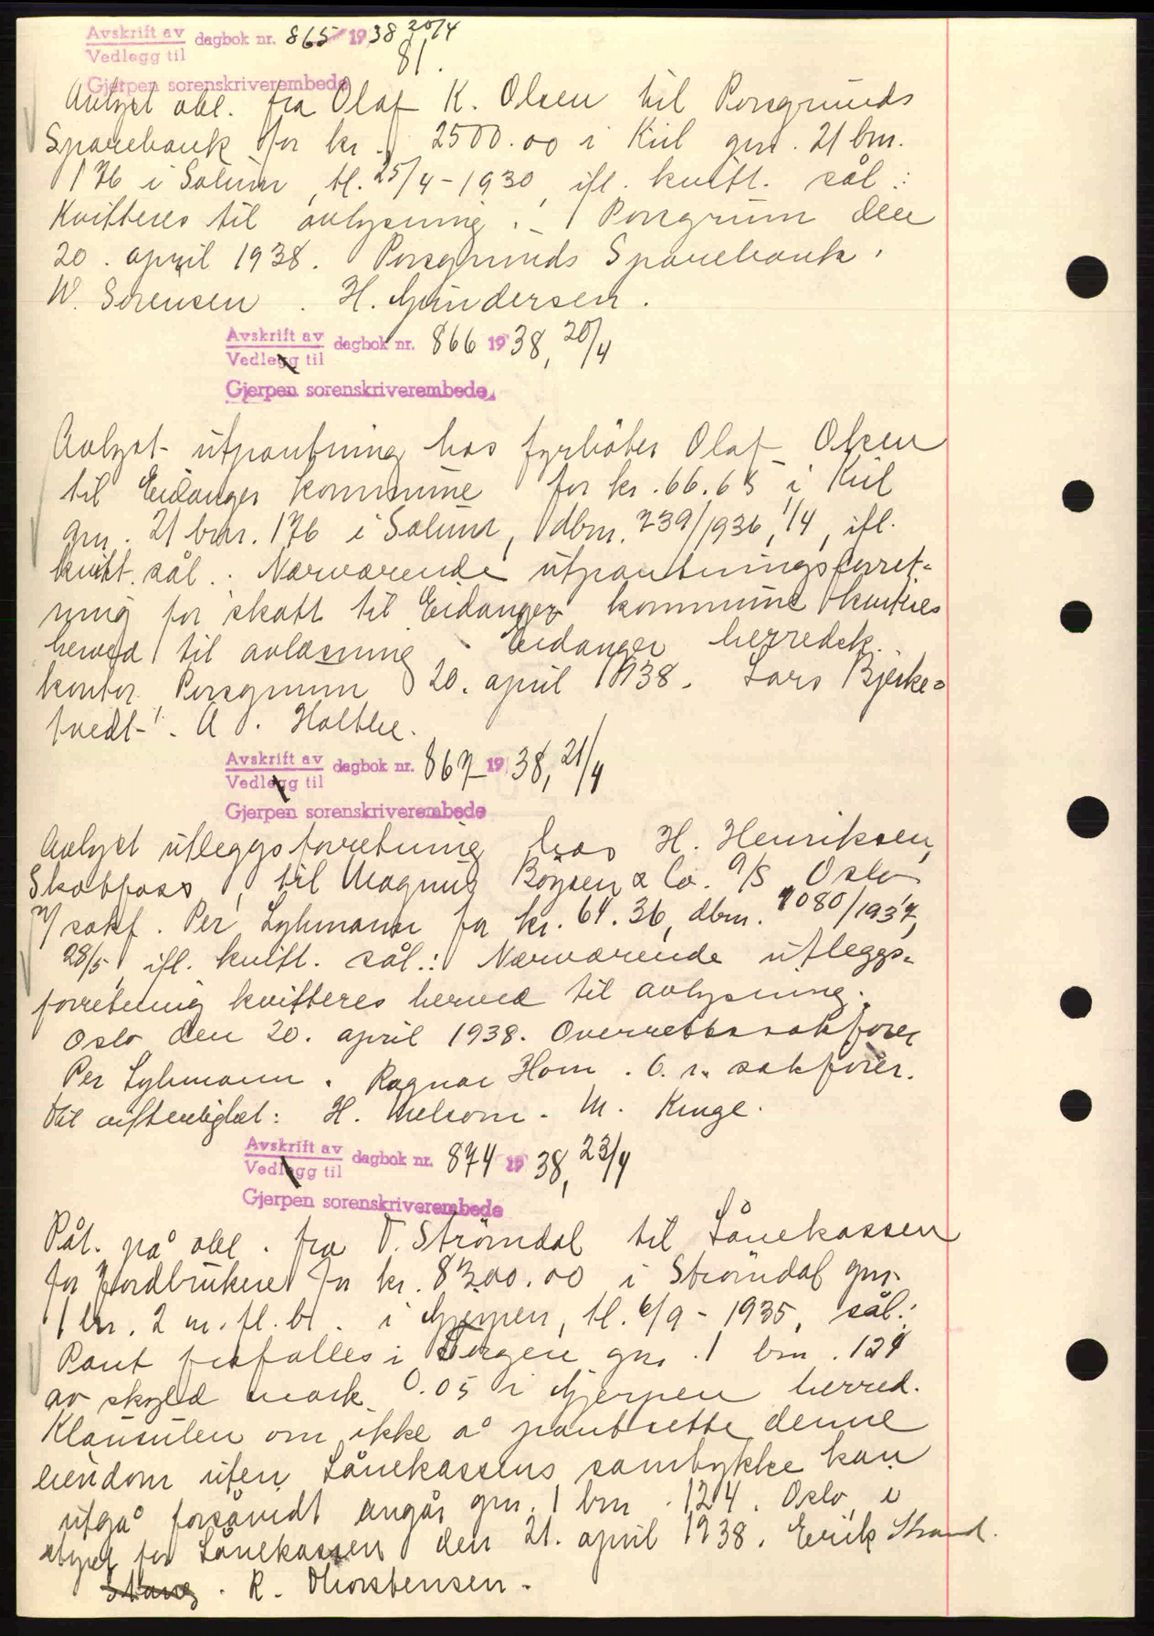 Avskrift av dagbok nr. 865 1938 20/4
Vedlegg til 81.
Gjerpen sorenskriverembede
Avlyst obl. fra Olaf K. Olsen til Porsgrunds
Sparebank for kr. 2500.00 i Kiil gnr. 21 bnr.
176 i Solum, tl. 25/4-1930, ifl. kvitt. sål.:
Kvitteres til avlysning. Porsgrunn den
20. april 1938. Porsgrunds Sparebank.
W. Sørensen. H. Gundersen.
Avskrift av dagbok nr. 866 1938, 20/4
Vedlegg til
Gjerpen sorenskriverembede
Avlyst utpantning hos fyrbøter Olaf Olsen
til Eidanger kommune for kr. 66.65 i Kiil
gnr. 21 bnr. 176 i Solum, dbnr. 739/1936, 1/4, ifl.
kvitt. sål.: Nærværende utpantningsforret-
ning for skatt til Eidanger kommune kvitteres
herved til avlæsning. Eidanger herredsk.
kontor Porsgrunn 20. april 1938. Lars Bjerke-
tvedt. A. Holtbe.
Avskrift av dagbok nr. 867 1938, 21/4
Vedlegg til
Gjerpen sorenskriverembede
Avlyst utleggsforretning hos H. Henriksen,
Skotfoss, til Magnus Boysen & Co. A/S, Oslo
v/ sakf. Per Lyhmann for kr. 64.36, dbnr. 1080/1937,
28/5, ifl. kvitt. sål.: Nærværende utleggs-
forretning kvitteres herved til avlysning.
Oslo den 20. april 1938. Overrettssakfører
Per Lyhmann. Ragnar Horn. O.r. sakfører.
Til vitterlighet: H. Melsom. M. Kruge.
Avskrift av dagbok nr. 874 1938, 23/4
Vedlegg til
Gjerpen sorenskriverembede
Påt. på obl. fra T. Strömdal til Lånekassen
for Jordbrukere for kr. 8300.00 i Strömdal gnr.
1 bnr. 2 m. fl. br. i Gjerpen, tl. 6/9-1935, sål.:
Pant frafalles i Bergen gnr. 1 bnr. 124
av skyld mark 0.05 i Gjerpen herred.
Klausulen om ikke å pantsette denne
eiendom uten Lånekassens samtykke kan
utgå forsåvidt angår gnr. 1 bnr. 124. Oslo, i
styret for Lånekassen den 21. april 1938. Erik Strand.
R. Thorstensen.